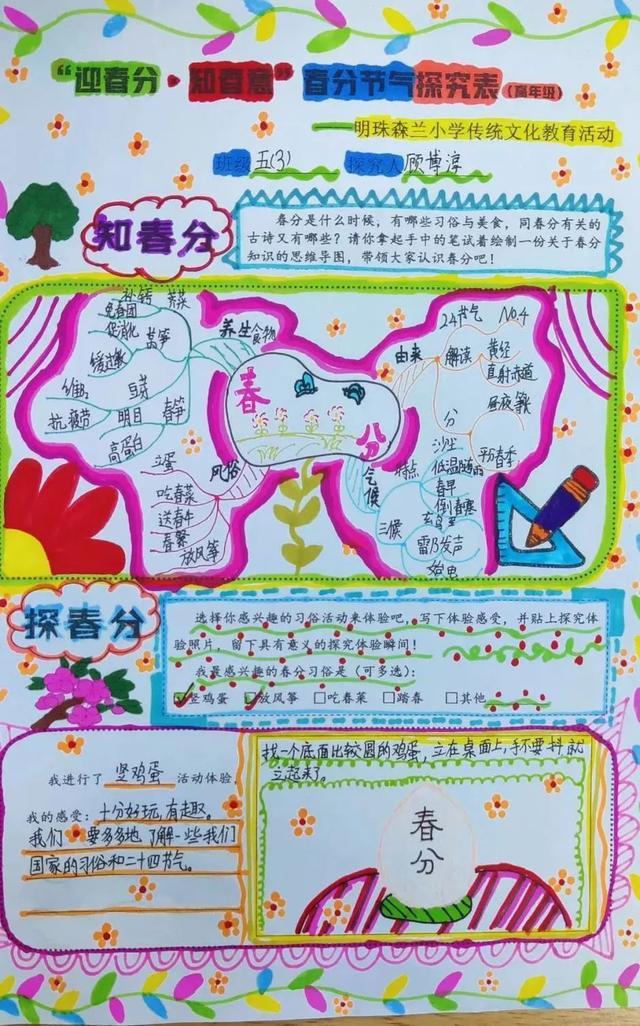 “迎春分·知春意”春分节气探究表(高年级)
——明珠森兰小学传统文化教育活动
班级 五(3) 探究人 顾博淳
知春分
春分是什么时候，有哪些习俗与美食，同春分有关的
古诗又有哪些？请你拿起手中的笔试着绘制一份关于春分
知识的思维导图，带领大家认识春分吧！
养生食物
促消化
莴笋
缓过敏
豆芽
抗疲劳
明目
春笋
高蛋白
风俗
立蛋
吃春菜
送春牛
放风筝
春
分
由来
24节气
NO.4
解读
黄经
直射赤道
分
昼夜等
平分春季
气候
特点
沙尘
低温阴雨
春旱
倒春寒
三候
玄鸟至
雷乃发声
始电
探春分
选择你感兴趣的习俗活动来体验吧，写下体验感受，并贴上探究体
验照片，留下具有意义的探究体验瞬间！
我最感兴趣的春分习俗是（可多选）：
☑竖鸡蛋 ☑放风筝 □吃春菜 □踏春 □其他
我进行了 竖鸡蛋 活动体验。
我的感受：十分好玩,有趣。
我们要多多地了解一些我们
国家的习俗和二十四节气。
找一个底面比较圆的鸡蛋,立在桌面上,手不要抖就
立起来了。
春
分